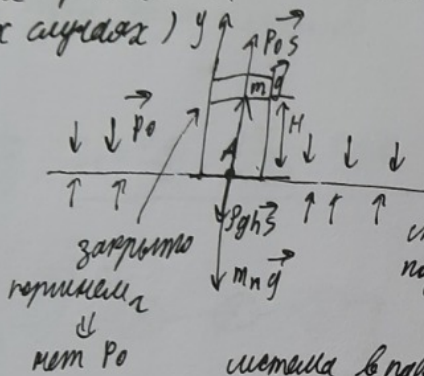 х случаях) y P₀S
m g
P₀ H
A
ρghS
закрыто mₙg
поршнем
⇓
нет P₀ система в